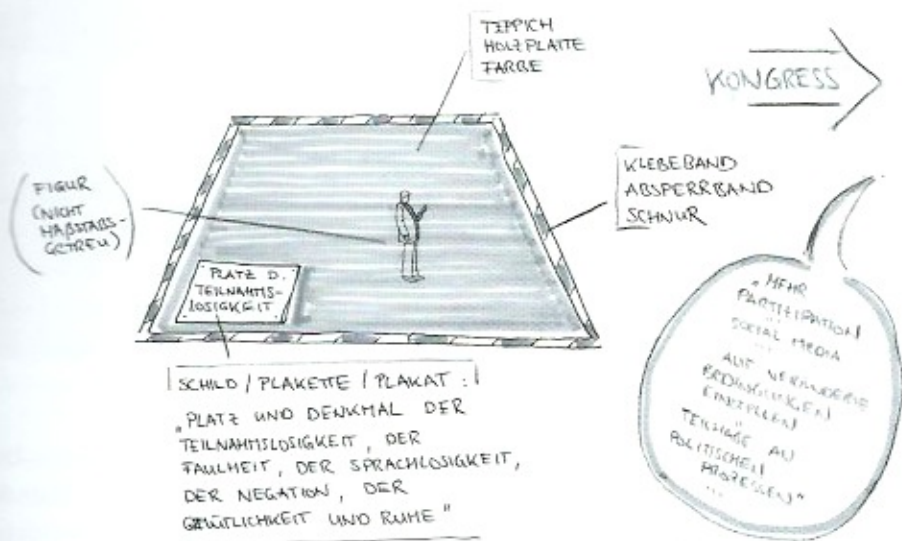 TEPPICH
HOLZPLATTE
FARBE
KONGRESS
KLEBEBAND
ABSPERRBAND
SCHNUR
FIGUR
(NICHT
MAßSTABS-
GETREU)
PLATZ D.
TEILNAHMS-
LOSIGKEIT
SCHILD / PLAKETTE / PLAKAT :
„PLATZ UND DENKMAL DER
TEILNAHMSLOSIGKEIT, DER
FAULHEIT, DER SPRACHLOSIGKEIT,
DER NEGATION, DER
GEMÜTLICHKEIT UND RUHE"
„MEHR
PARTIZIPATION
...
SOCIAL MEDIA
...
AUF VERÄNDERTE
BEDINGUNGEN
EINSTELLEN
...
TEILHABE AN
POLITISCHEN
PROZESSEN"
...